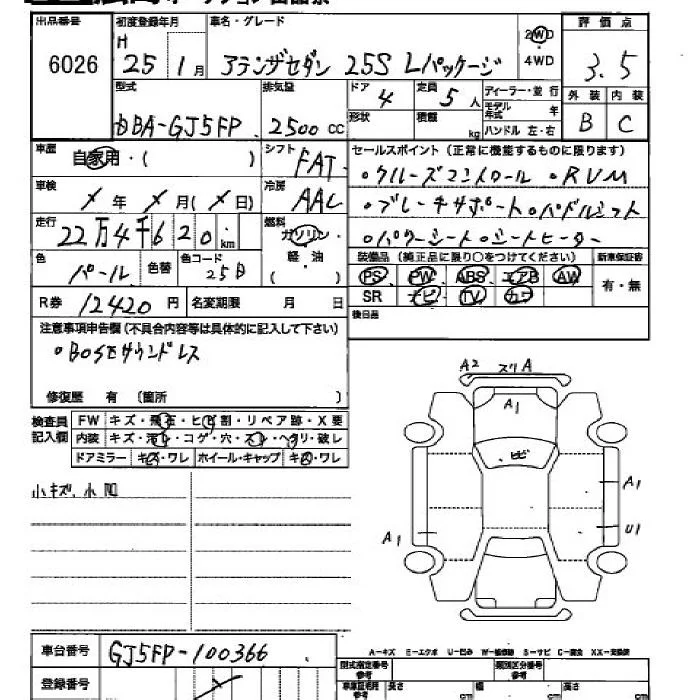 出品番号 初度登録年月 車名・グレード 評価点
6026 H 25 1月 アテンザセダン 25S Lパッケージ 2WD 4WD 3.5
型式 排気量 ドア 定員 ディーラー・並行 外装 内装
DBA-GJ5FP 2500cc 4 5人 モデル年式 年 B C
形状 積載 kg ハンドル 左・右
車歴 自家用・( ) シフト FAT セールスポイント(正常に機能するものに限ります)
・クルーズコントロール ・RVM
車検 ×年 ×月(×日) 冷房 AAC
・ブレーキサポート・パドルシフト
走行 22万4千620km 燃料 ガソリン・軽油
・パワーシート・シートヒーター
色 パール 色替 色コード 25D 装備品(純正品に限り○をつけてください) 新車保証書
PS PW ABS エアB AW 有・無
R券 12420円 名変期限 月 日 SR ナビ TV カワ
注意事項申告欄(不具合内容等は具体的に記入して下さい) 後日品
・BOSEサウンドレス
修復歴 有 (箇所 )
検査員記入欄 FW キズ・飛石・ヒビ割・リペア跡・X要
内装 キズ・汚レ・コゲ・穴・スレ・ヘタリ・破レ
ドアミラー キズ・ワレ ホイール・キャップ キズ・ワレ
小キズ、小凹
A2 スリA
A1
ヒビ
A1
A1 U1
車台番号 GJ5FP-100366
A-キズ E-エクボ U-凹み W-補修跡 S-サビ C-腐食 XX-交換済
登録番号 型式指定番号 参考 類別区分番号 参考
車庫証明用 参考 長さ cm 幅 cm 高さ cm